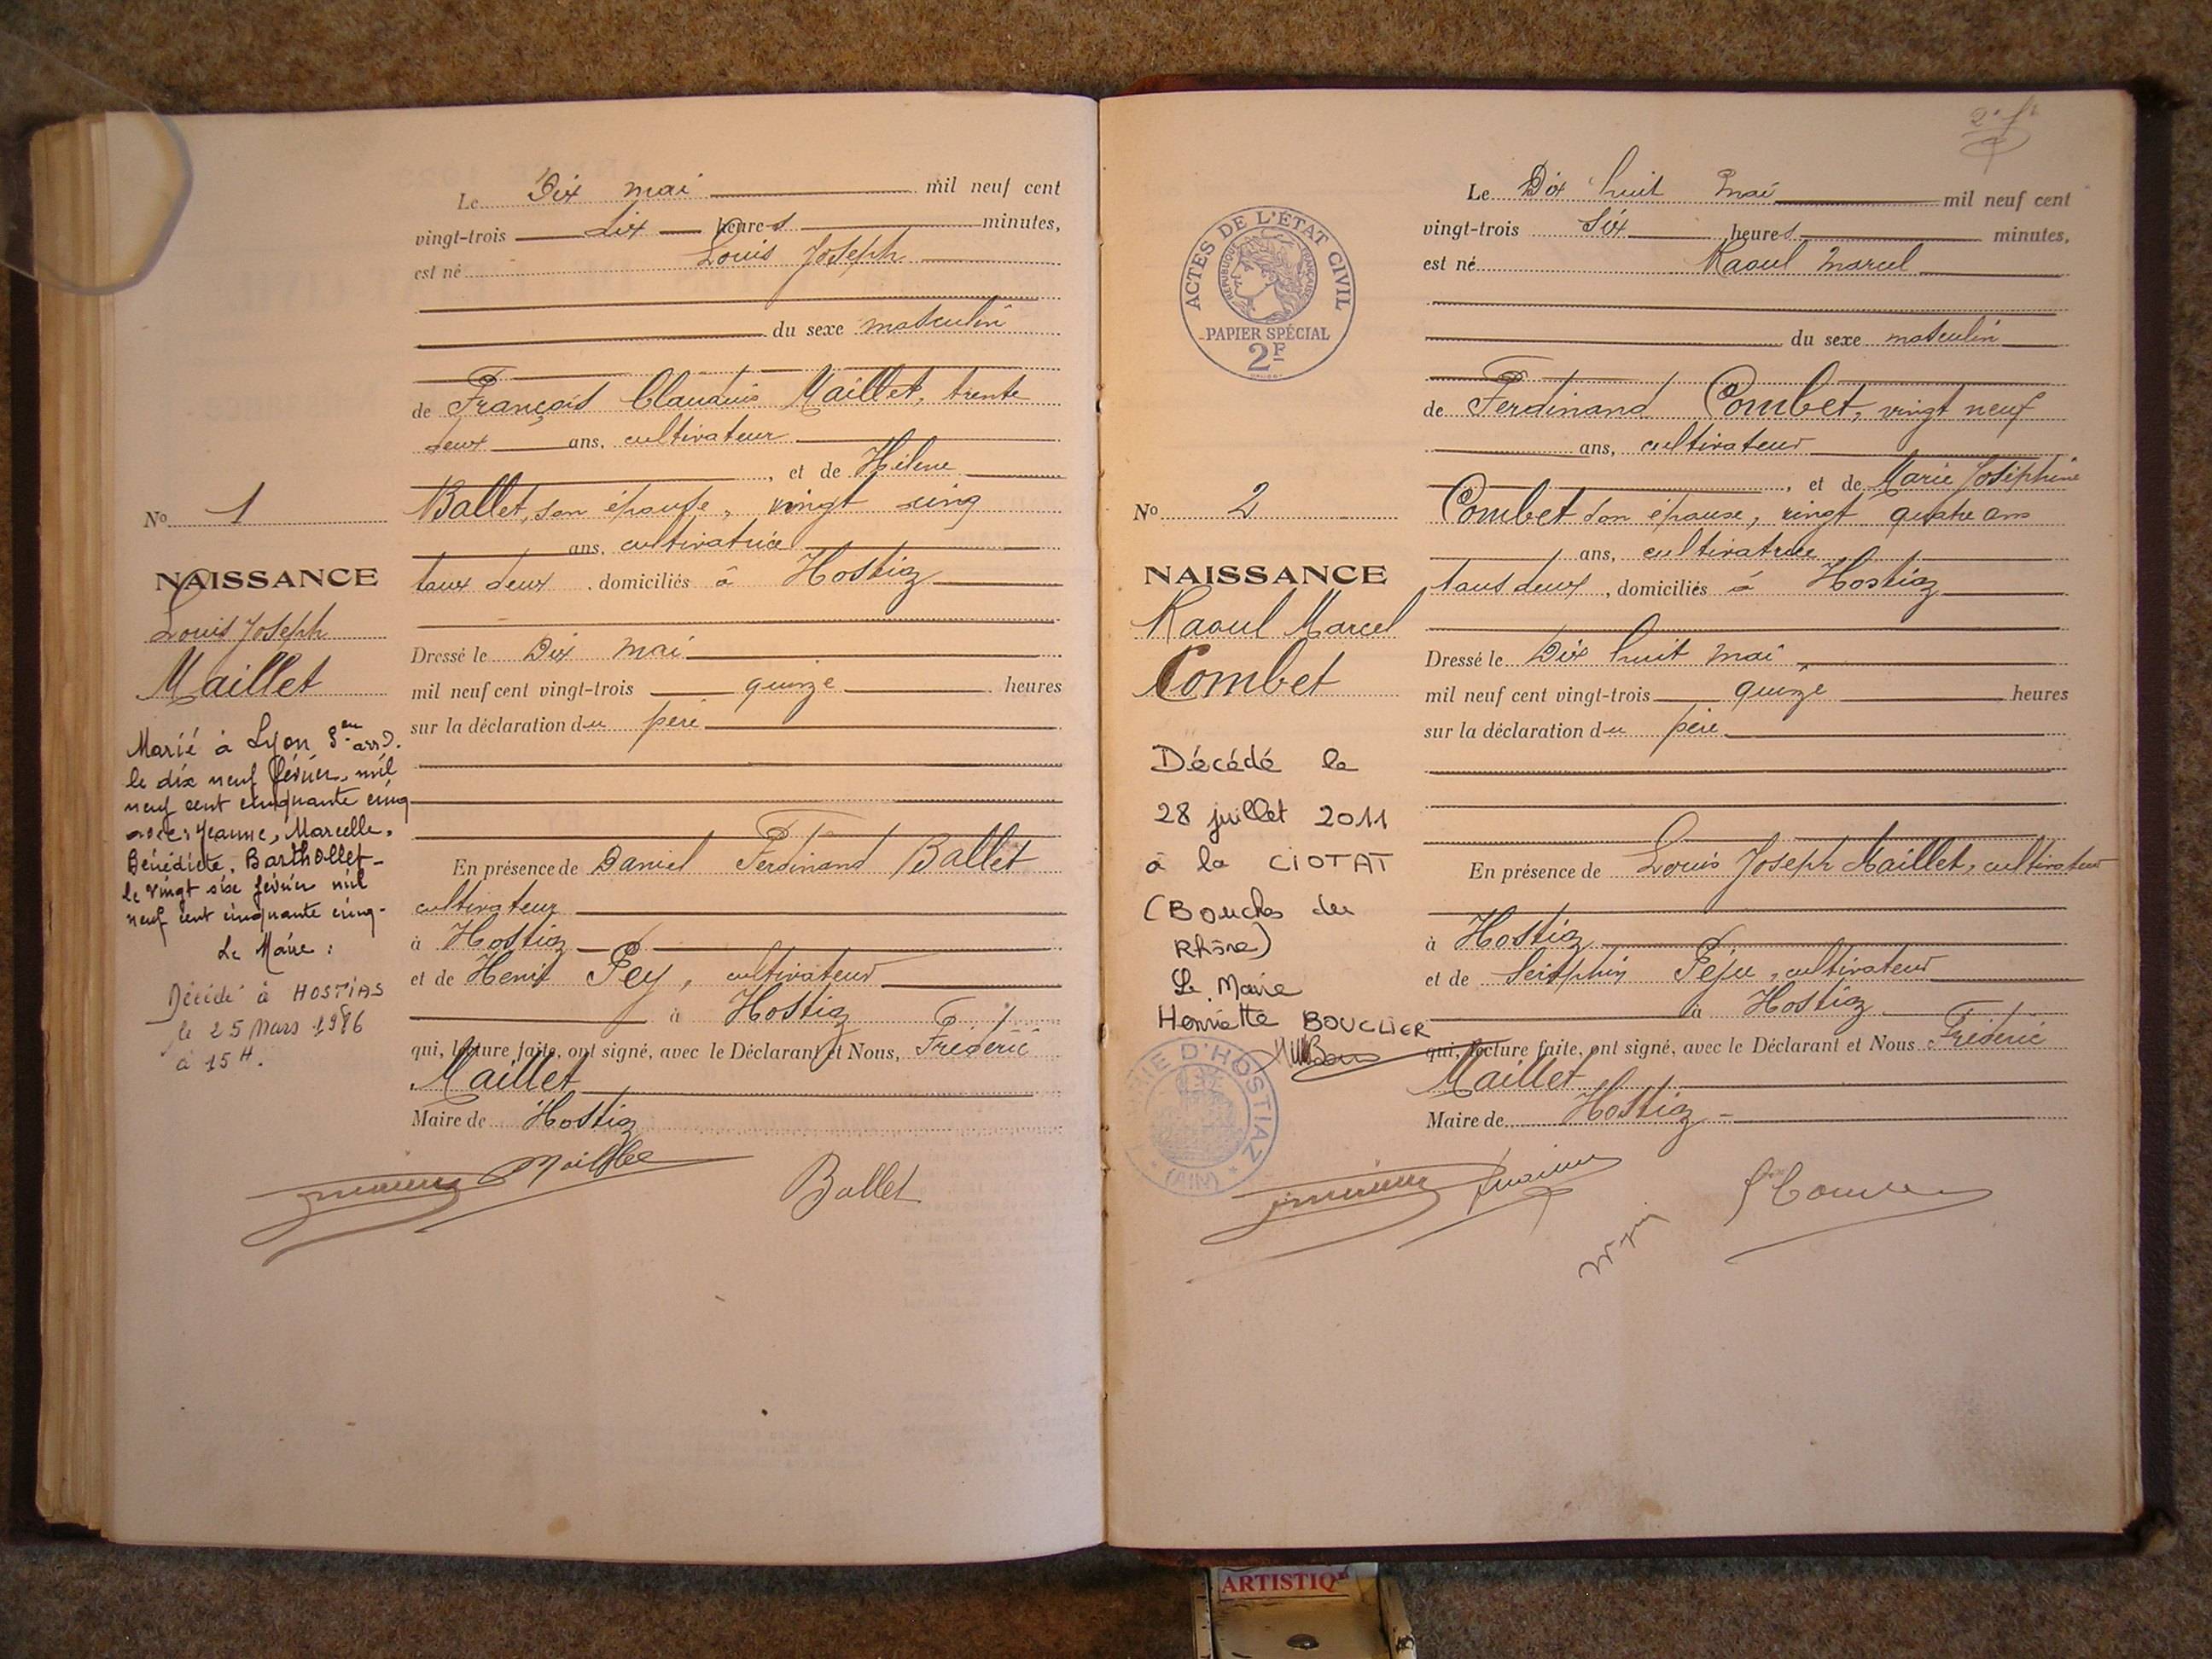 Le Dix mai mil neuf cent
vingt-trois dix heures minutes,
est né Louis Joseph
du sexe masculin
de François Claudius Maillet, trente
deux ans, cultivateur
, et de Hélène
Ballet, son épouse, vingt cinq
ans, cultivatrice
tous deux, domiciliés à Hostiaz
Dressé le Dix mai
mil neuf cent vingt-trois quinze heures
sur la déclaration du père
En présence de Daniel Ferdinand Ballet
cultivateur
à Hostiaz
et de Henri Pey, cultivateur
à Hostiaz
qui, lecture faite, ont signé, avec le Déclarant et Nous, Frédéric
Maillet
Maire de Hostiaz
Ballet
No 1
NAISSANCE
Louis Joseph
Maillet
Marié à Lyon arrt.
le dix neuf février mil
neuf cent cinquante cinq
avec Jeanne, Marcelle,
Bénédicte, Barthollet
le vingt six février mil
neuf cent cinquante cinq-
Le Maire :
Décédé à HOSTIAS
le 25 Mars 1986
à 15 H.
Le Dix huit mai mil neuf cent
vingt-trois six heures minutes,
est né Raoul Marcel
du sexe masculin
de Ferdinand Combet, vingt neuf
ans, cultivateur
, et de Marie Joséphine
Combet son épouse, vingt quatre ans
ans, cultivatrice
tous deux, domiciliés à Hostiaz
Dressé le Dix huit mai
mil neuf cent vingt-trois quinze heures
sur la déclaration du père
En présence de Louis Joseph Maillet, cultivateur
à Hostiaz
et de Péju, cultivateur
à Hostiaz
qui, lecture faite, ont signé, avec le Déclarant et Nous Frédéric
Maillet
Maire de Hostiaz
ACTES DE L'ÉTAT CIVIL
RÉPUBLIQUE FRANÇAISE
PAPIER SPÉCIAL
2F
No 2
NAISSANCE
Raoul Marcel
Combet
Décédé le
28 juillet 2011
à la CIOTAT
(Bouches du
Rhône)
Le Maire
Henriette BOUCLIER
MAIRIE D'HOSTIAZ
(AIN)
ARTISTIQ